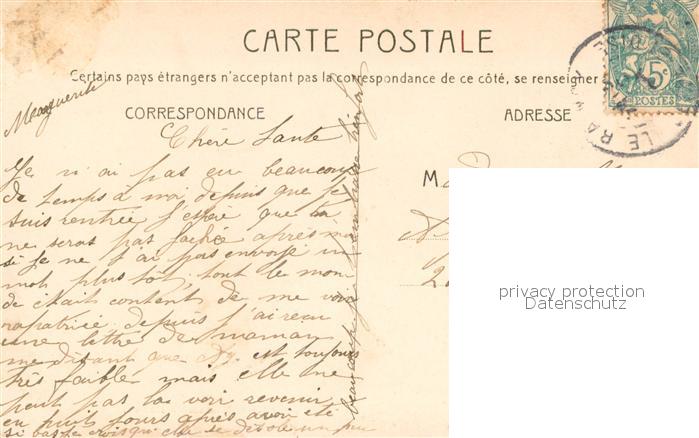 CARTE POSTALE
Certains pays étrangers n'acceptant pas la correspondance de ce côté, se renseigner
CORRESPONDANCE
ADRESSE
5c
POSTES
LE RA
Marguerite
Chère Tante
Je n'ai pas eu beaucoup
de temps a moi depuis que je
suis rentrée j'espère que tu
ne seras pas fachée après moi
si je ne t'ai pas envoyé un
mot plus tôt, tout le mon
de était contents de me voir
rapatriée depuis j'ai reçu
une lettre de maman
me disant que est toujours
très faible mais elle ne
peut pas la voir revenir
en huit jours après avoir été
si bas je crois qui elle se désole un peu
beaucoup
M
privacy protection
Datenschutz